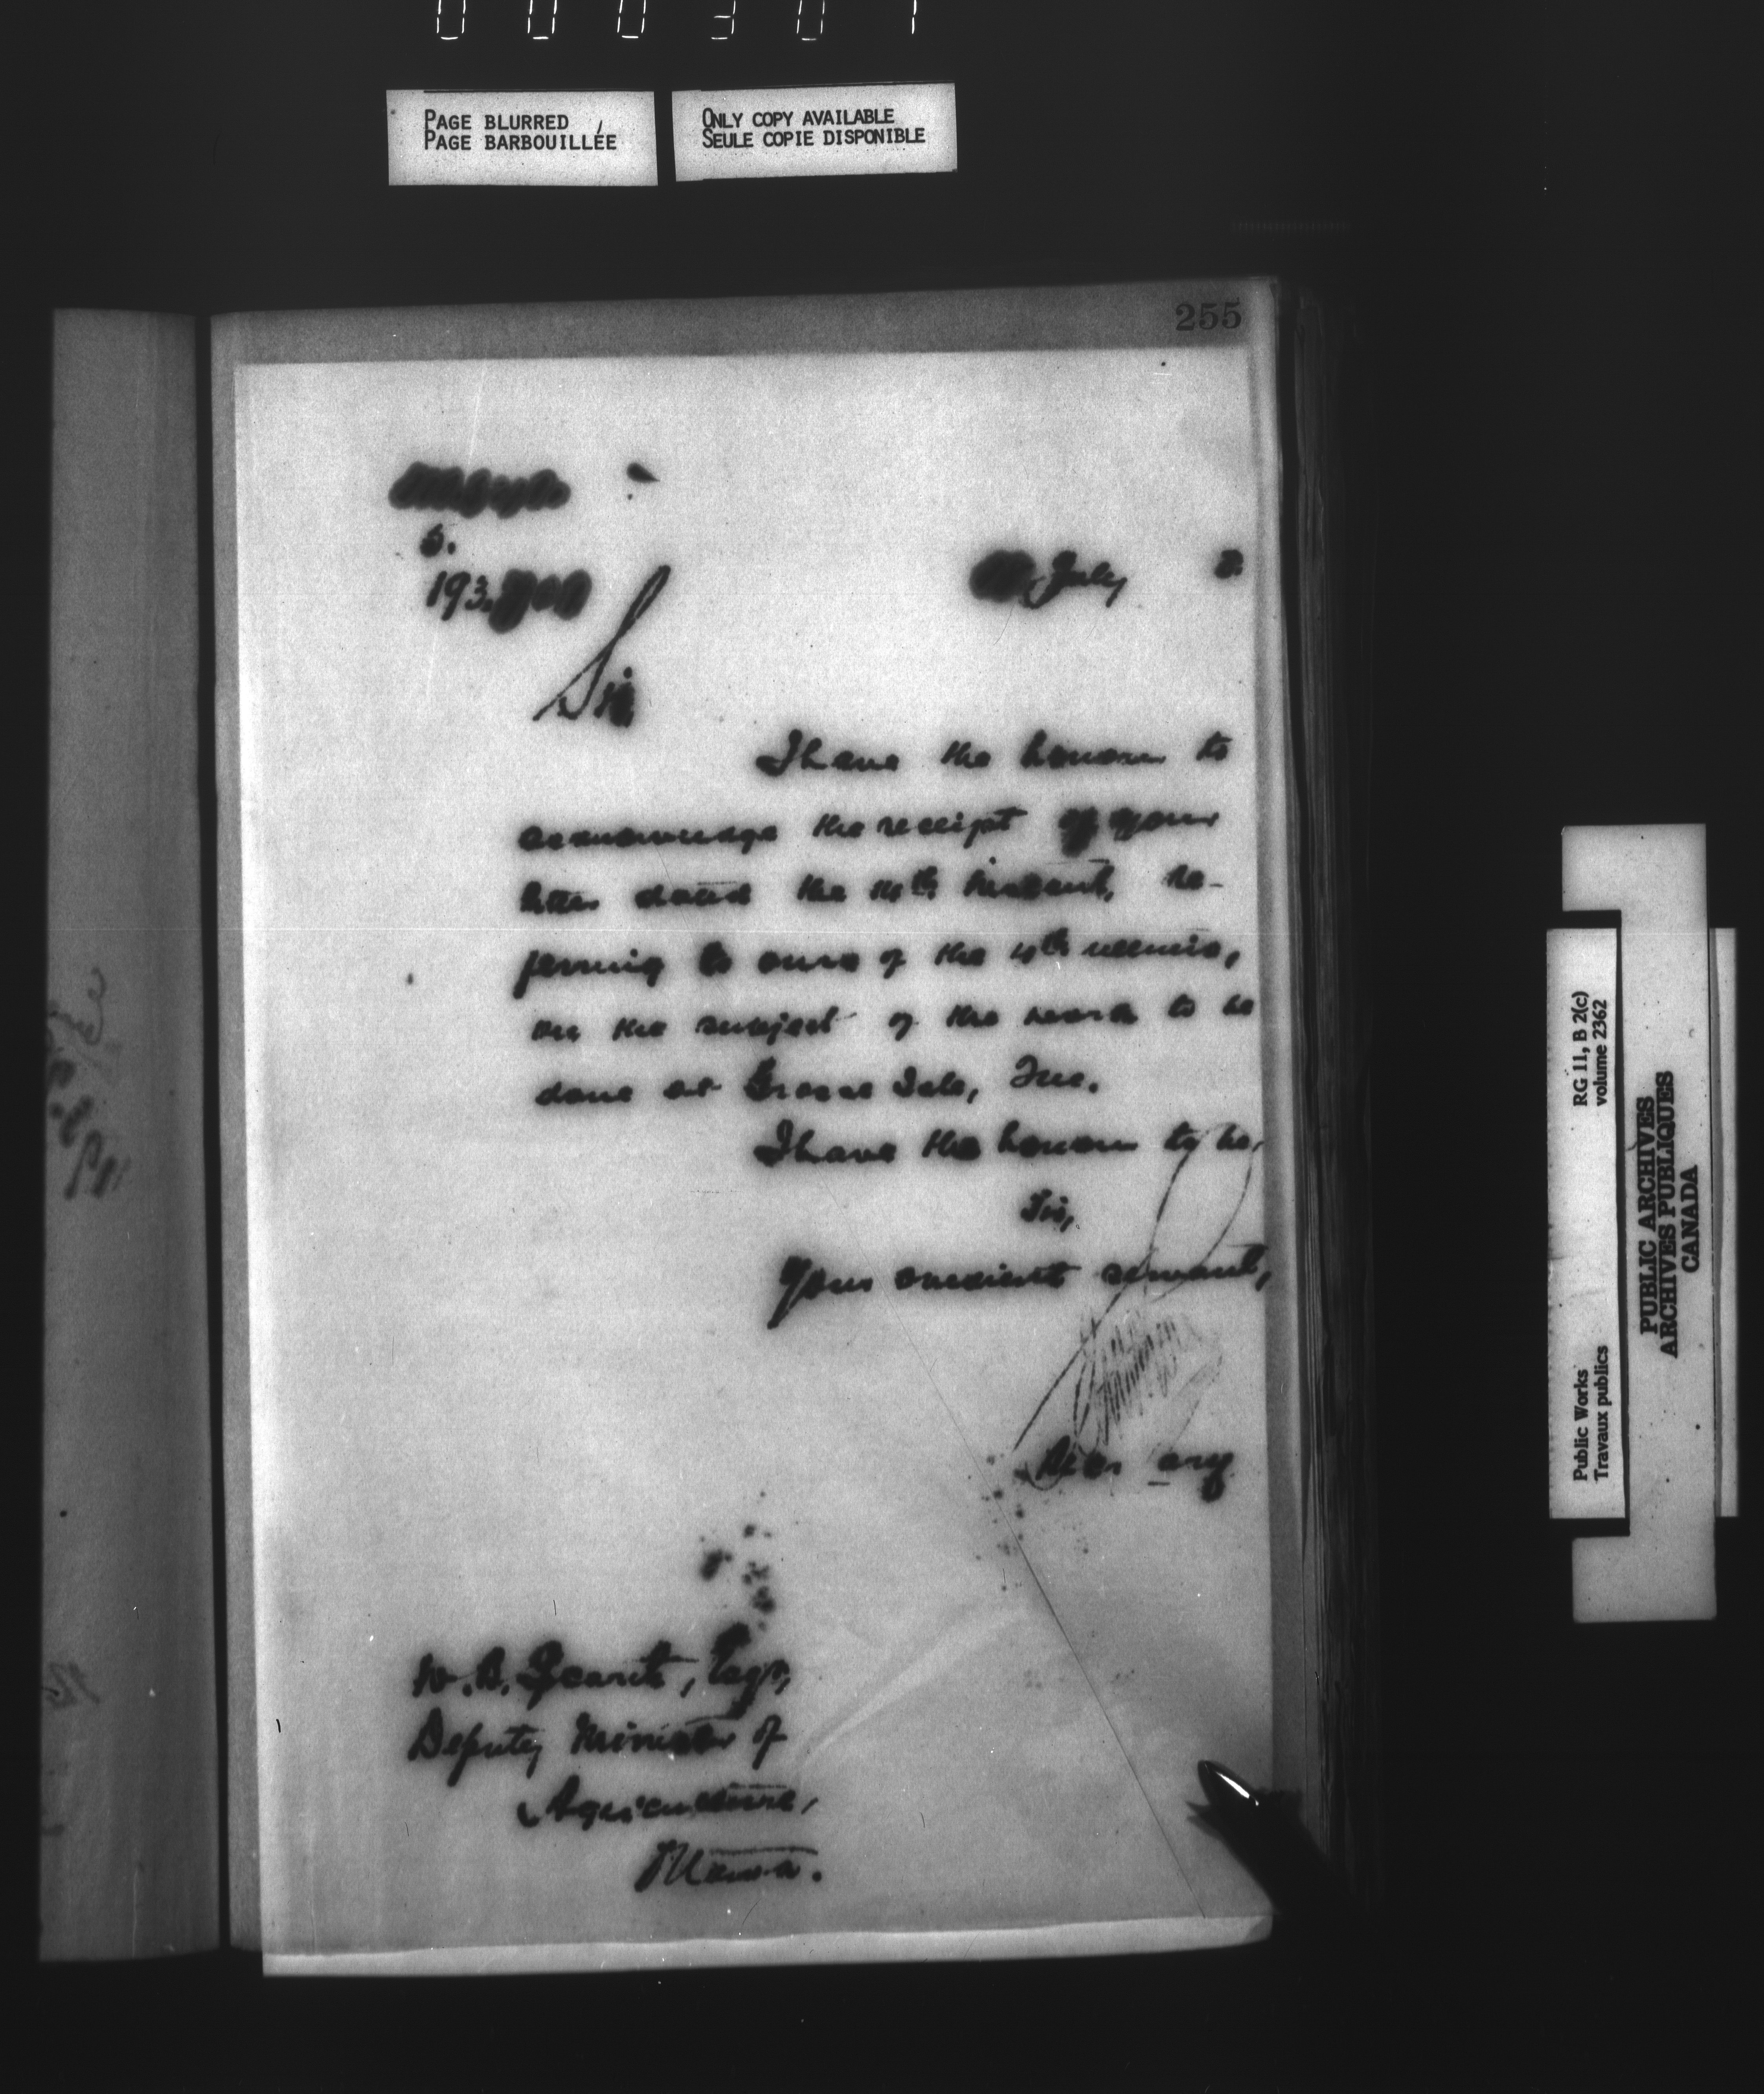 PAGE BLURRED
PAGE BARBOUILLÉE
ONLY COPY AVAILABLE
SEULE COPIE DISPONIBLE
255
5.
193.
July 3.
Sir
I have the honour to
acknowledge the receipt of your
letter dated the 14th instant, re-
ferring to ours of the 4th idem,
on the subject of the work to be
done at Grosse Isle, Que.
I have the honour to be,
Sir,
Your obedient servant,
W. B. Scarth, Esqr,
Deputy Minister of
Agriculture,
Ottawa.
RG 11, B 2(c)
volume 2362
Public Works
Travaux publics
PUBLIC ARCHIVES
ARCHIVES PUBLIQUES
CANADA